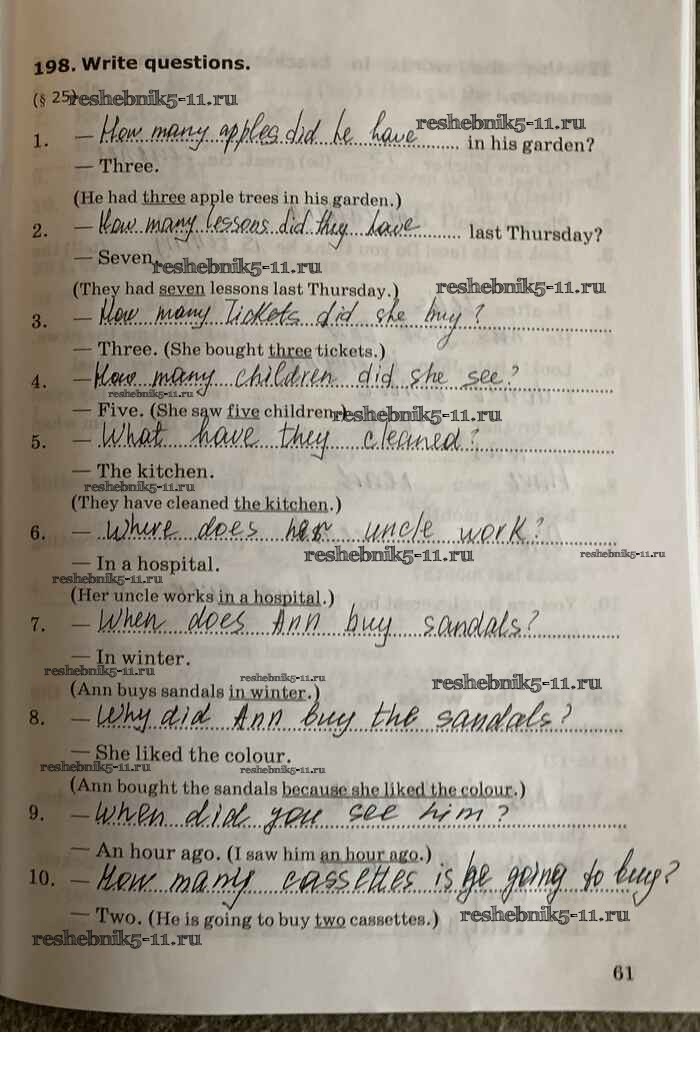 198. Write questions.
(§ 25) reshebnik5-11.ru
reshebnik5-11.ru
1. — How many apples did he have in his garden?
— Three.
(He had three apple trees in his garden.)
2. — How many lessons did they have last Thursday?
— Seven.
reshebnik5-11.ru
reshebnik5-11.ru
(They had seven lessons last Thursday.)
3. — How many tickets did she buy?
— Three. (She bought three tickets.)
4. — How many children did she see?
reshebnik5-11.ru
— Five. (She saw five children.)
reshebnik5-11.ru
5. — What have they cleaned?
— The kitchen.
reshebnik5-11.ru
(They have cleaned the kitchen.)
6. — Where does her uncle work?
reshebnik5-11.ru
reshebnik5-11.ru
— In a hospital.
reshebnik5-11.ru
(Her uncle works in a hospital.)
7. — When does Ann buy sandals?
— In winter.
reshebnik5-11.ru
reshebnik5-11.ru
reshebnik5-11.ru
(Ann buys sandals in winter.)
8. — Why did Ann buy the sandals?
— She liked the colour.
reshebnik5-11.ru
reshebnik5-11.ru
(Ann bought the sandals because she liked the colour.)
9. — When did you see him?
— An hour ago. (I saw him an hour ago.)
10. — How many cassettes is he going to buy?
— Two. (He is going to buy two cassettes.)
reshebnik5-11.ru
reshebnik5-11.ru
61